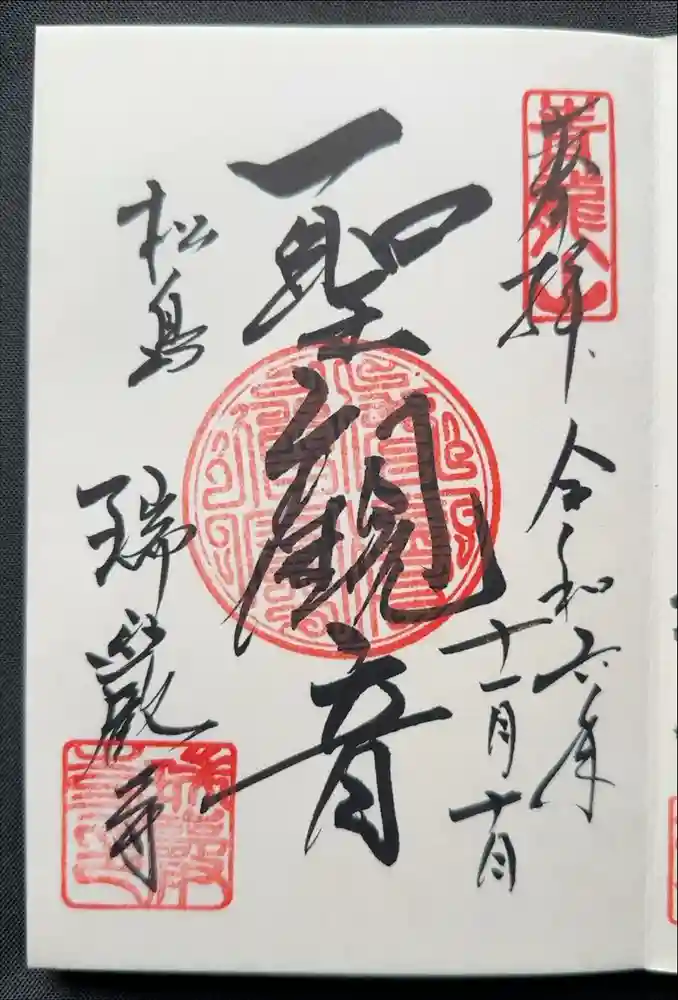 奉拝
令和六年
十一月十日
聖観音
松島
瑞巌寺